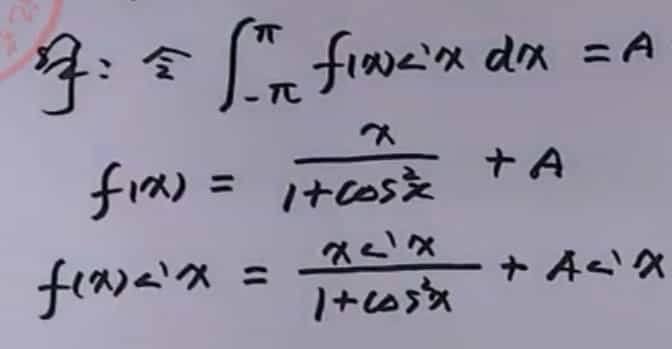 解: 令 ∫_{-π}^{π} f(x) sin x dx = A
f(x) = x / (1+cos²x) + A
f(x) sin x = x sin x / (1+cos²x) + A sin x